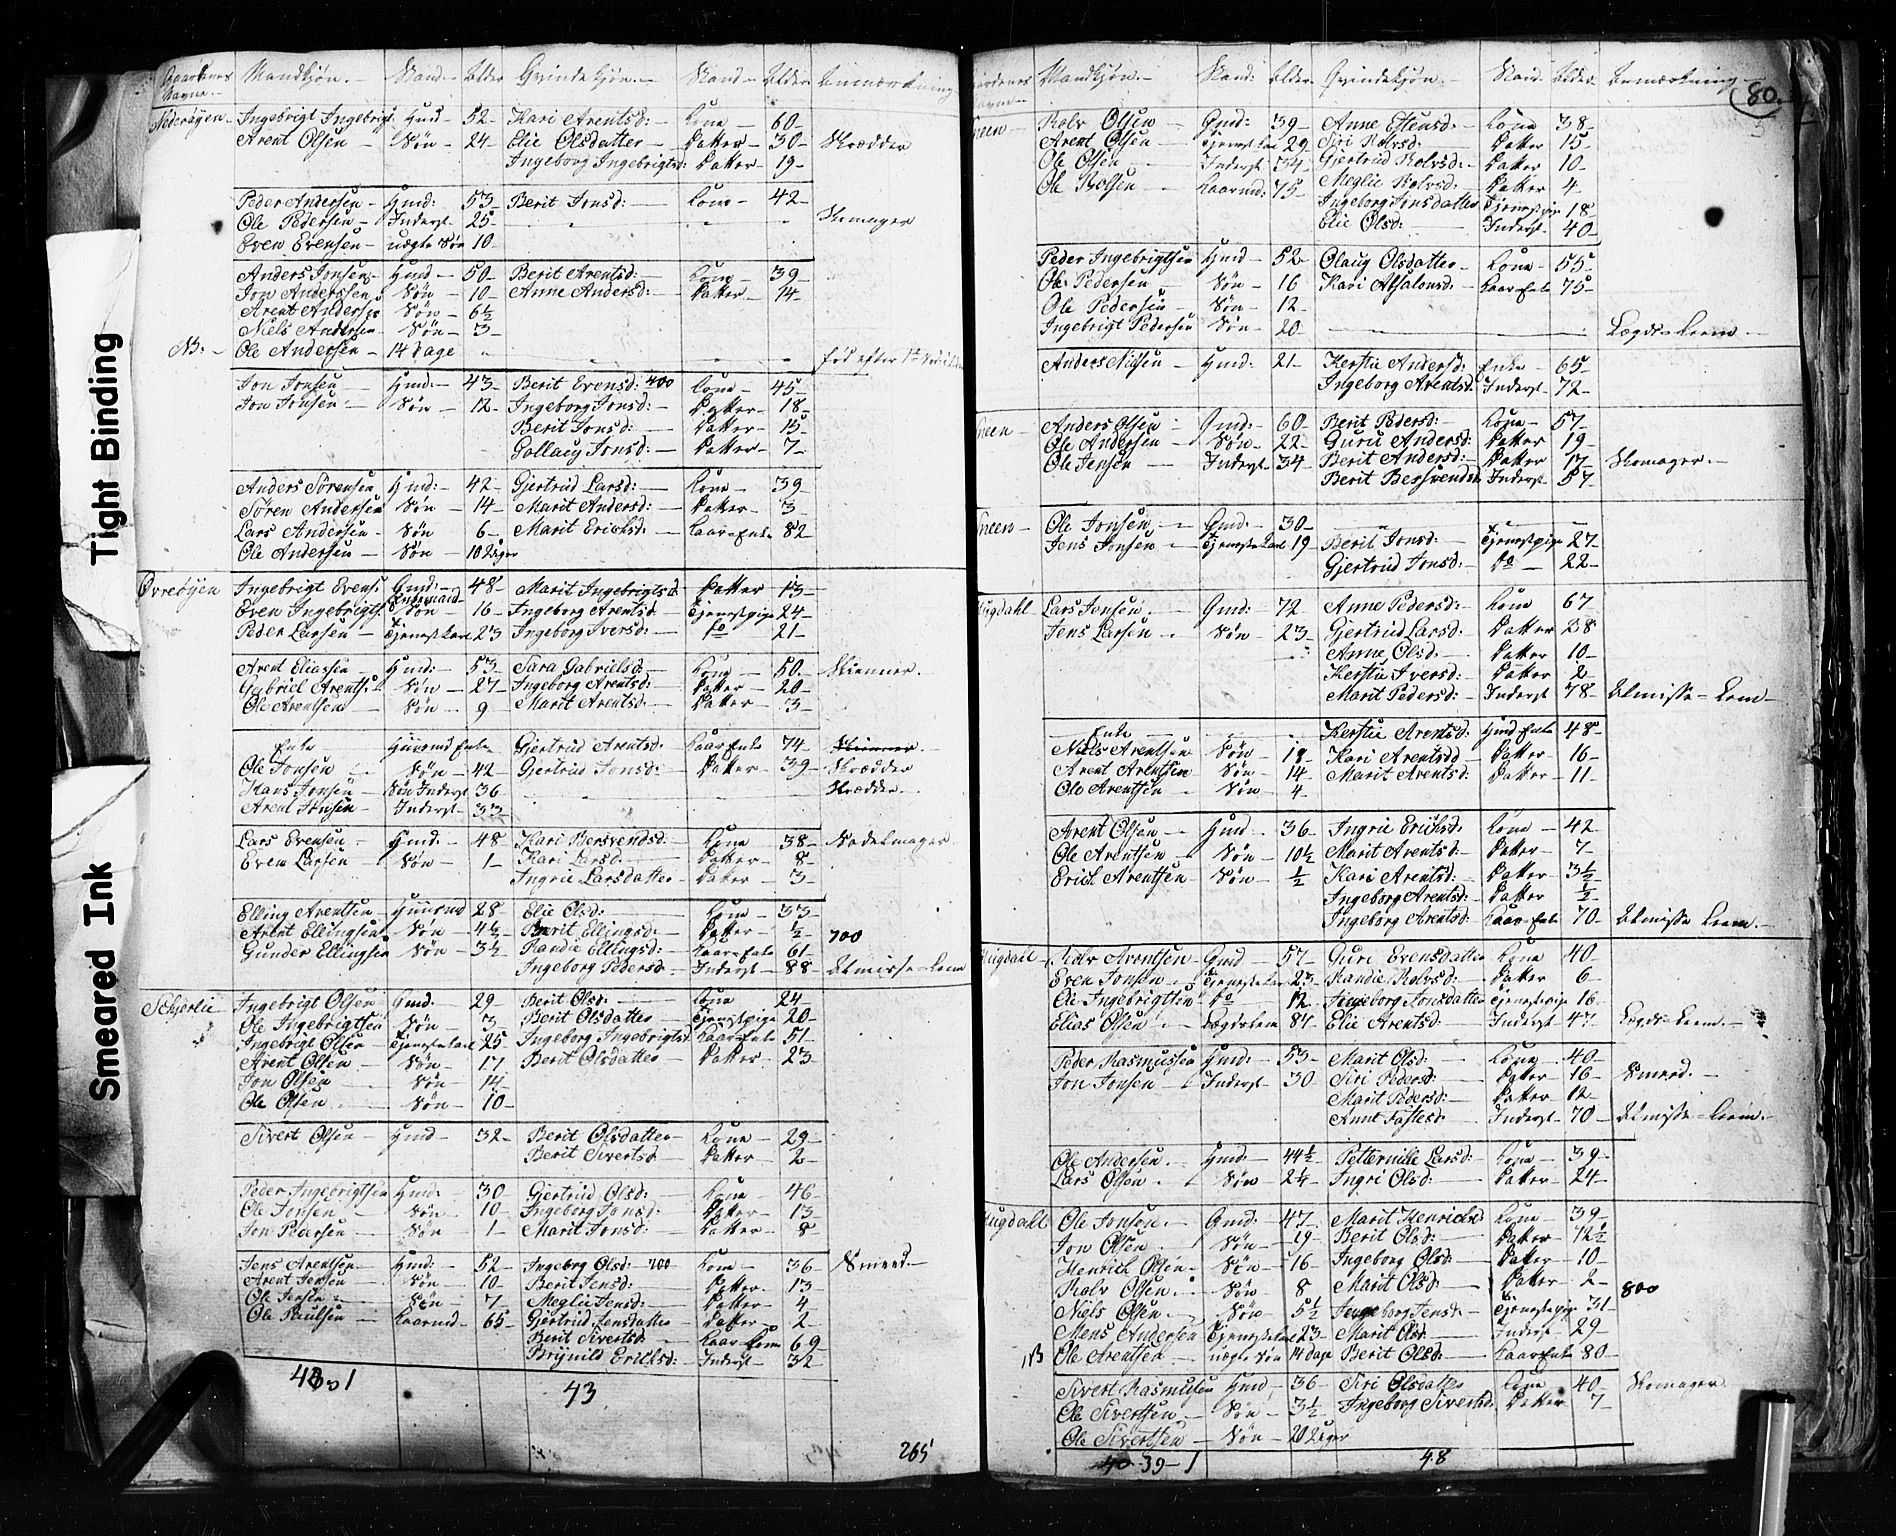 Tight Binding
Smeared Ink
Mandkjøn. Stand. Alder Qvindekjøn. Stand Alder Anmærkning
Nederøyen Ingebrigt Ingebrigts. Hmd 52 Kari Arentsd: Kone 60
Arent Olsen Søn 24 Elie Olsdatter Datter 30 Skrædder
Ingeborg Ingebrigtsd: Datter 19
Peder Andersen Hmd: 53 Berit Jonsd: Kone 42
Ole Pedersen Inderst 25 Skomager
Even Evensen uægte Søn 10
Anders Jonsen Hmd 50 Berit Arentsd: Kone 39
Jon Anderssen Søn 10 Anne Andersd: Datter 14
Arent Anderse Søn 6½
Niels Andersen Søn 3
NB: Ole Andersen 14 Dage fød efter
Jon Jonsen Hmd: 43 Berit Evensd: 400 Kone 45
Jon Jonsen Søn 12 Ingeborg Jonsd: Datter 18
Berit Jonsd: Datter 15
Gollaug Jonsd: Datter 7
Anders Sørensen Hmd: 42 Gjertrud Larsd: Kone 39
Søren Andersen Søn 14 Marit Andersd: Datter 3
Lars Andersen Søn 6 Marit Erichsd: Kaar-Enke 82
Ole Andersen Søn 10 Uger
Øvreøyen Ingebrigt Evens. Gmd: 48 Marit Ingebrigtsd Datter 13
Even Ingebrigts. Søn 16 Ingeborg Arentsd Tjenestpige 24
Peder Larsen Tjenestkarl 23 Ingeborg Iversd: Do 21
Arent Eliassen Hmd: 53 Sara Gabrielsd: Kone 50 Skinner.
Gabriel Arents. Søn 27 Ingeborg Arentsd: Datter 20
Ole Arentsen Søn 9 Marit Arentsd: Datter 3
Enke Huusmd Enke Gjertrud Arentsd: Kaar Enke 74 Skinner
Ole Jonsen Søn 42 Gjertrud Jonsd: Datter 39 Skrædder
Hans Jonsen Søn Inderst 36 Skrædder
Arent Jonsen Inderst 33
Lars Evensen Hmd: 48 Kari Bersvendsd: Kone 38 Sadelmager.
Even Larsen Søn 1 Kari Larsd. Datter 8
Ingrie Larsdatter Datter 3
Elling Arentsen Huusmd 28 Elie Olsd: Kone 33
Arent Ellingsen Søn 4½ Berit Ellingsd: Datter ½ 700
Gunder Ellingsen Søn 3½ Randie Ellingsd: Kaar-Enke 61
Ingeborg Pedersd: Inderst 88 Almisse-Lem
Schjerlie Ingebrigt Olsen Gmd: 29 Berit Olsd: Kone 24
Ole Ingebrigtsen Søn 3 Berit Olsdatter Tjenestpige 20
Ingebrigt Olsen Tjenestkarl 25 Ingeborg Ingebrigtsd Kaar-Enke 51
Arent Olsen Søn 17 Berit Olsdatter Datter 23
Jon Olsen Søn 14
Ole Olsen Søn 10
Sivert Olsen Hmd 32 Berit Olsdatter Kone 29
Berit Sivertsd Datter 2
Peder Ingebrigtsen Hmd: 30 Gjertrud Olsd: Kone 46
Ole Jonsen Søn 10 Ingeborg Jonsd: Datter 13
Jon Pedersen Søn 1 Marit Jonsd: Datter 8
Jens Arentsen Hmd: 52 Ingebrg Olsd: 200 Kone 36 Smeed
Arent Jensen Søn 10 Berit Jensd: Datter 13
Ole Jensen Søn 7 Meglie Jensd: Datter 4
Ole Paulsen Kaarmd 65 Gjertrud Jensdatter Datter 2
Berit Sivertsd Kaar-Kone 69
Brynild Erichsd: Inderst 32
43
265
Mandkjøn. Stand: Alder Qvindekjøn. Stand. Alder Anmærkning 80
neen Rolv Olsen Gmd: 39 Anne Estensd: Kone 38
Arent Olsen Tjenestkarl 29 Siri Rolvsd: Datter 15
Ole Olsen Inderst 34 Gjertrud Rolvsd: Datter 10
Ole Rolsen Kaarmd: 75 Meglie Rolvsd: Datter 4
Ingeborg Jonsdatter Tjenestpige 18
Elie Olsd: Inderst 40
Peder Ingebrigtsen Hmd 52 Olaug Olsdatter Kone 55
Ole Pedersen Søn 16 Kari Absalonsd: Kaar-Enke 75
Ole Pedersen Søn 12
Ingebrigt Pedersen Søn 20 Lægds-Leem
Anders Nilsen Hmd: 21 Kerstie Andersd: Enke 65
Ingeborg Arentsd: Inderst 72
neen Anders Olsen Gmd: 60 Berit Pedersd: Kone 57
Ole Andersen Søn 22 Guru Andersd: Datter 19
Ole Jensen Inderst 34 Berit Andersd: Datter 17 Skomager.
Berit Bersvendsd Inderst 57
neen Ole Jonsen Gmd: 30
Jens Jonsen Tjenestekarl 19 Berit Jonsd: Tjenestpige 27
Gjertrud Jonsd: Do 22
ugdahl Lars Jensen Gmd: 72 Anne Pedersd: Kone 67
Jens Larsen Søn 23 Gjertrud Larsd: Datter 28
Anne Olsd: Datter 10
Kerstie Iversd: Datter 2
Marit Pedersd: Inderst 78 Almisse-Lem
Enke Kerstie Arentsd: Hmd Enke 48
Niels Arentsen Søn 18 Kari Arentsd Datter 16
Arent Arentsen Søn 14 Marit Arentsd: Datter 11
Ole Arentsen Søn 4
Arent Olsen Hmd 36 Ingrie Erichsd. Kone 42
Ole Arentsen Søn 10½ Marit Arentsd: Datter 7
Erich Arentsen Søn ½ Kari Arentsd: Datter 3½
Ingeborg Arentsd: Datter ½
Ingeborg Arentsd: Kaar-Enke 70 Almisse Leem.
ugdahl Rolv Arentsen Gmd 57 Guri Evensdatter Kone 40
Even Jonsen Tjenestekar 23 Randie Rolvsd: Datter 6
Ole Ingebrigtsen Do 12 Ingeborg Jonsdatter Tjenestpige 16
Elias Olsen Lægdslem 84 Elie Arentsd: Inderst 47 Lægds-Leem.
Peder Rasmussen Hmd: 53 Marit Olsd: Kone 40
Jon Jonsen Inderst 30 Siri Pedersd: Datter 16 Smeed.
Marit Pedersd: Datter 12
Anne Fastesd: Inderst 70 Almisse-Leem.
Ole Andersen Hmd: 44½ Petternille Larsd: Kone 39
Lars Olsen Søn 2¼ Ingri Olsd: Datter 24
ugdahl Ole Jonsen Gmd: 47 Marit Henrichsd: Kone 39
Jon Olsen Søn 19 Berit Olsd: Datter 12½
Henrich Olsen Søn 16 Ingeborg Olsd: Datter 10
Rolv Olsen Søn 8 Marit Olsd: Datter 2 800
Niels Olsen Søn 5½ Ingeborg Jensd: Tjenestepige 31
Mons Andersen Tjenestekarl 23 Marit Olsd: Inderst 29
NB Ole Arentsen uægte Søn 14 Dage Berit Olsd: Kaar-Enke 80
Sivert Rasmusen Hmd 36 Siri Olsdatter Kone 40 Skomager
Ole Sivertsen Søn 3½ Ingeborg Sivertsd: Datter 7
Ole Sivertsen Søn 20 Uger
40 39-1 48